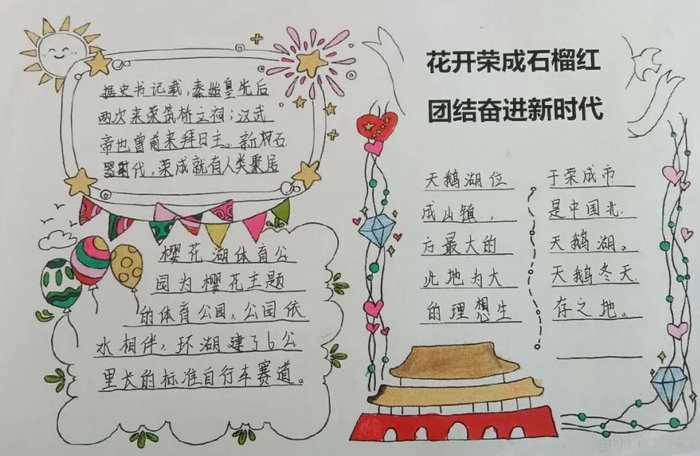 花开荣成石榴红
团结奋进新时代
据史书记载,秦始皇先后
两次来荣筑桥立祠;汉武
帝也曾前来拜日主。新石
器时代,荣成就有人类聚居
樱花湖体育公
园为樱花主题
的体育公园,公园依
水相伴,环湖建了6公
里长的标准自行车赛道。
天鹅湖位于荣成市
成山镇,是中国北
方最大的天鹅湖。
此地为大天鹅冬天
的理想生存之地。